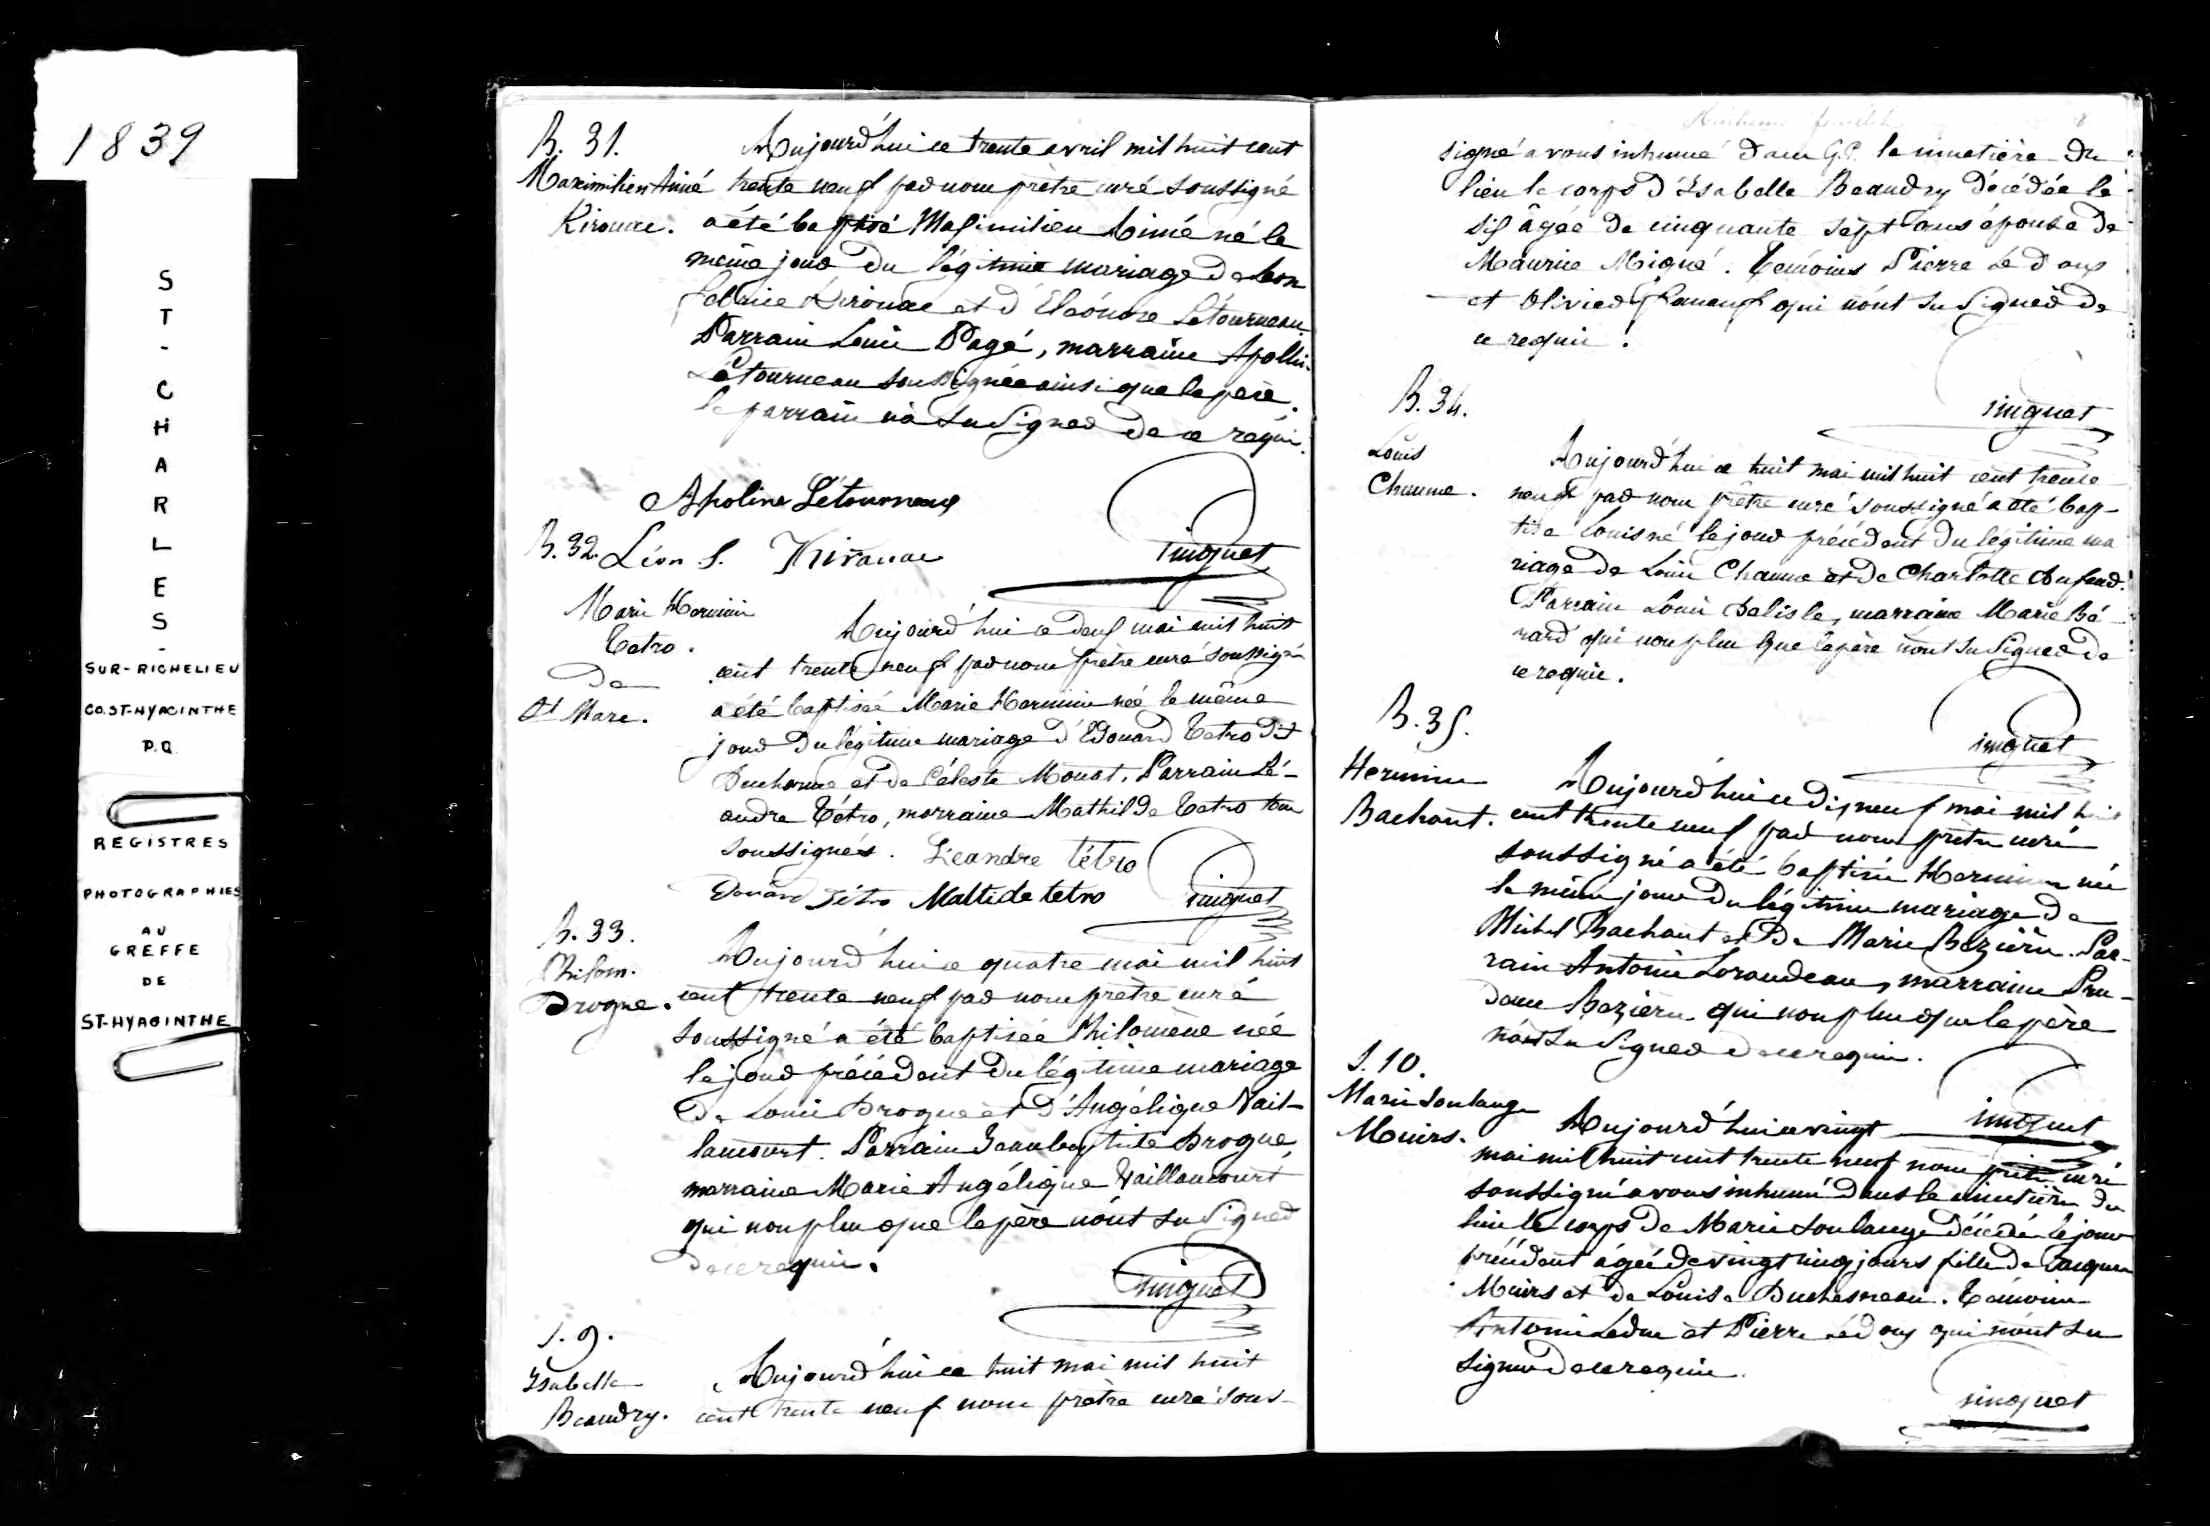 1839
ST-CHARLES-
SUR-RICHELIEU
CO.ST-HYACINTHE
P.Q.
REGISTRES
PHOTOGRAPHIES
AU
GREFFE
DE
ST-HYACINTHE
B. 31.
Maximilien Aimé
Kirouac.
Aujourd'hui ce trente avril mil huit cent
trente neuf par nous prêtre curé soussigné
a été baptisé Maximilien Aimé né le
même jour du légitime mariage de Leon
Kirouac et d'Eléonore Létourneau.
Parrain Louis Pagé, marraine Apolli-
Létourneau soussignée ainsi que le père.
le parrain n'a su signer de ce requis.
Apoline Létourneau
Léon S. Kirouac
B. 32.
Marie Hermine
Tetro.
De
St Marc.
Aujourd'hui ce deux mai mil huit
cent trente neuf par nous prêtre curé soussigné
a été baptisée Marie Hermine née le même
jour du légitime mariage d'Edouard Tetro dit
Ducharme et de Céleste Monat. Parrain Lé-
andre Tétro, marraine Mathilde Tetro tous
soussignés. Léandre tétro
Edouard Tétro Maltide tetro
B. 33.
Philom.
Drogue.
Aujourd'hui ce quatre mai mil huit
cent trente neuf par nous prêtre curé
soussigné a été baptisée Philomène née
le jour précédent du légitime mariage
de Louis Drogue et d'Angélique Vail-
lancourt. Parrain Jeanbaptiste Drogue,
marraine Marie Angélique Vaillancourt
qui non plus que le père n'ont su signer
de ce requis.
S. 9.
Isabelle
Beaudry.
Aujourd'hui ce huit mai mil huit
cent trente neuf nous prêtre curé sous-
signé avons inhumé dans le cimetière du
lieu le corps d'Isabelle Beaudry décédée le
six âgée de cinquante sept ans épouse de
Maurice Migné. Temoins Pierre Ledoux
et Olivier qui n'ont su signer de
ce requis.
B. 34.
Louis
Chaume.
Aujourd'hui ce huit mai mil huit cent trente
neuf par nous prêtre curé soussigné a été bap-
tisé Louis né le jour précédent du légitime ma
riage de Louis Chaume et de Charlotte
Parrain Louis Delisle, marraine Marie Bé-
rard qui non plus que le père n'ont su signer de
ce requis.
B. 35.
Hermine
Bachant.
Aujourd'hui ce dixneuf mai mil huit
cent trente neuf par nous prêtre curé
soussigné a été baptisée Hermine née
le même jour du légitime mariage de
Michel Bachant et de Marie Bezière. Par-
rain Antoine Lorandeau, marraine Pru-
dence Bezière qui non plus que le père
n'ont su signer de ce requis.
S. 10.
Marie Soulange
Muirs.
Aujourd'hui ce vingt
mai mil huit cent trente neuf nous prêtre curé
soussigné avons inhumé dans le cimetière du
lieu le corps de Marie Soulange décédée le jour
précédent âgée de vingt cinq jours fille de Jacques
Muirs et de Louise Duchesneau. Témoins
Antoine Leduc et Pierre Lédoux qui n'ont su
signer de ce requis.